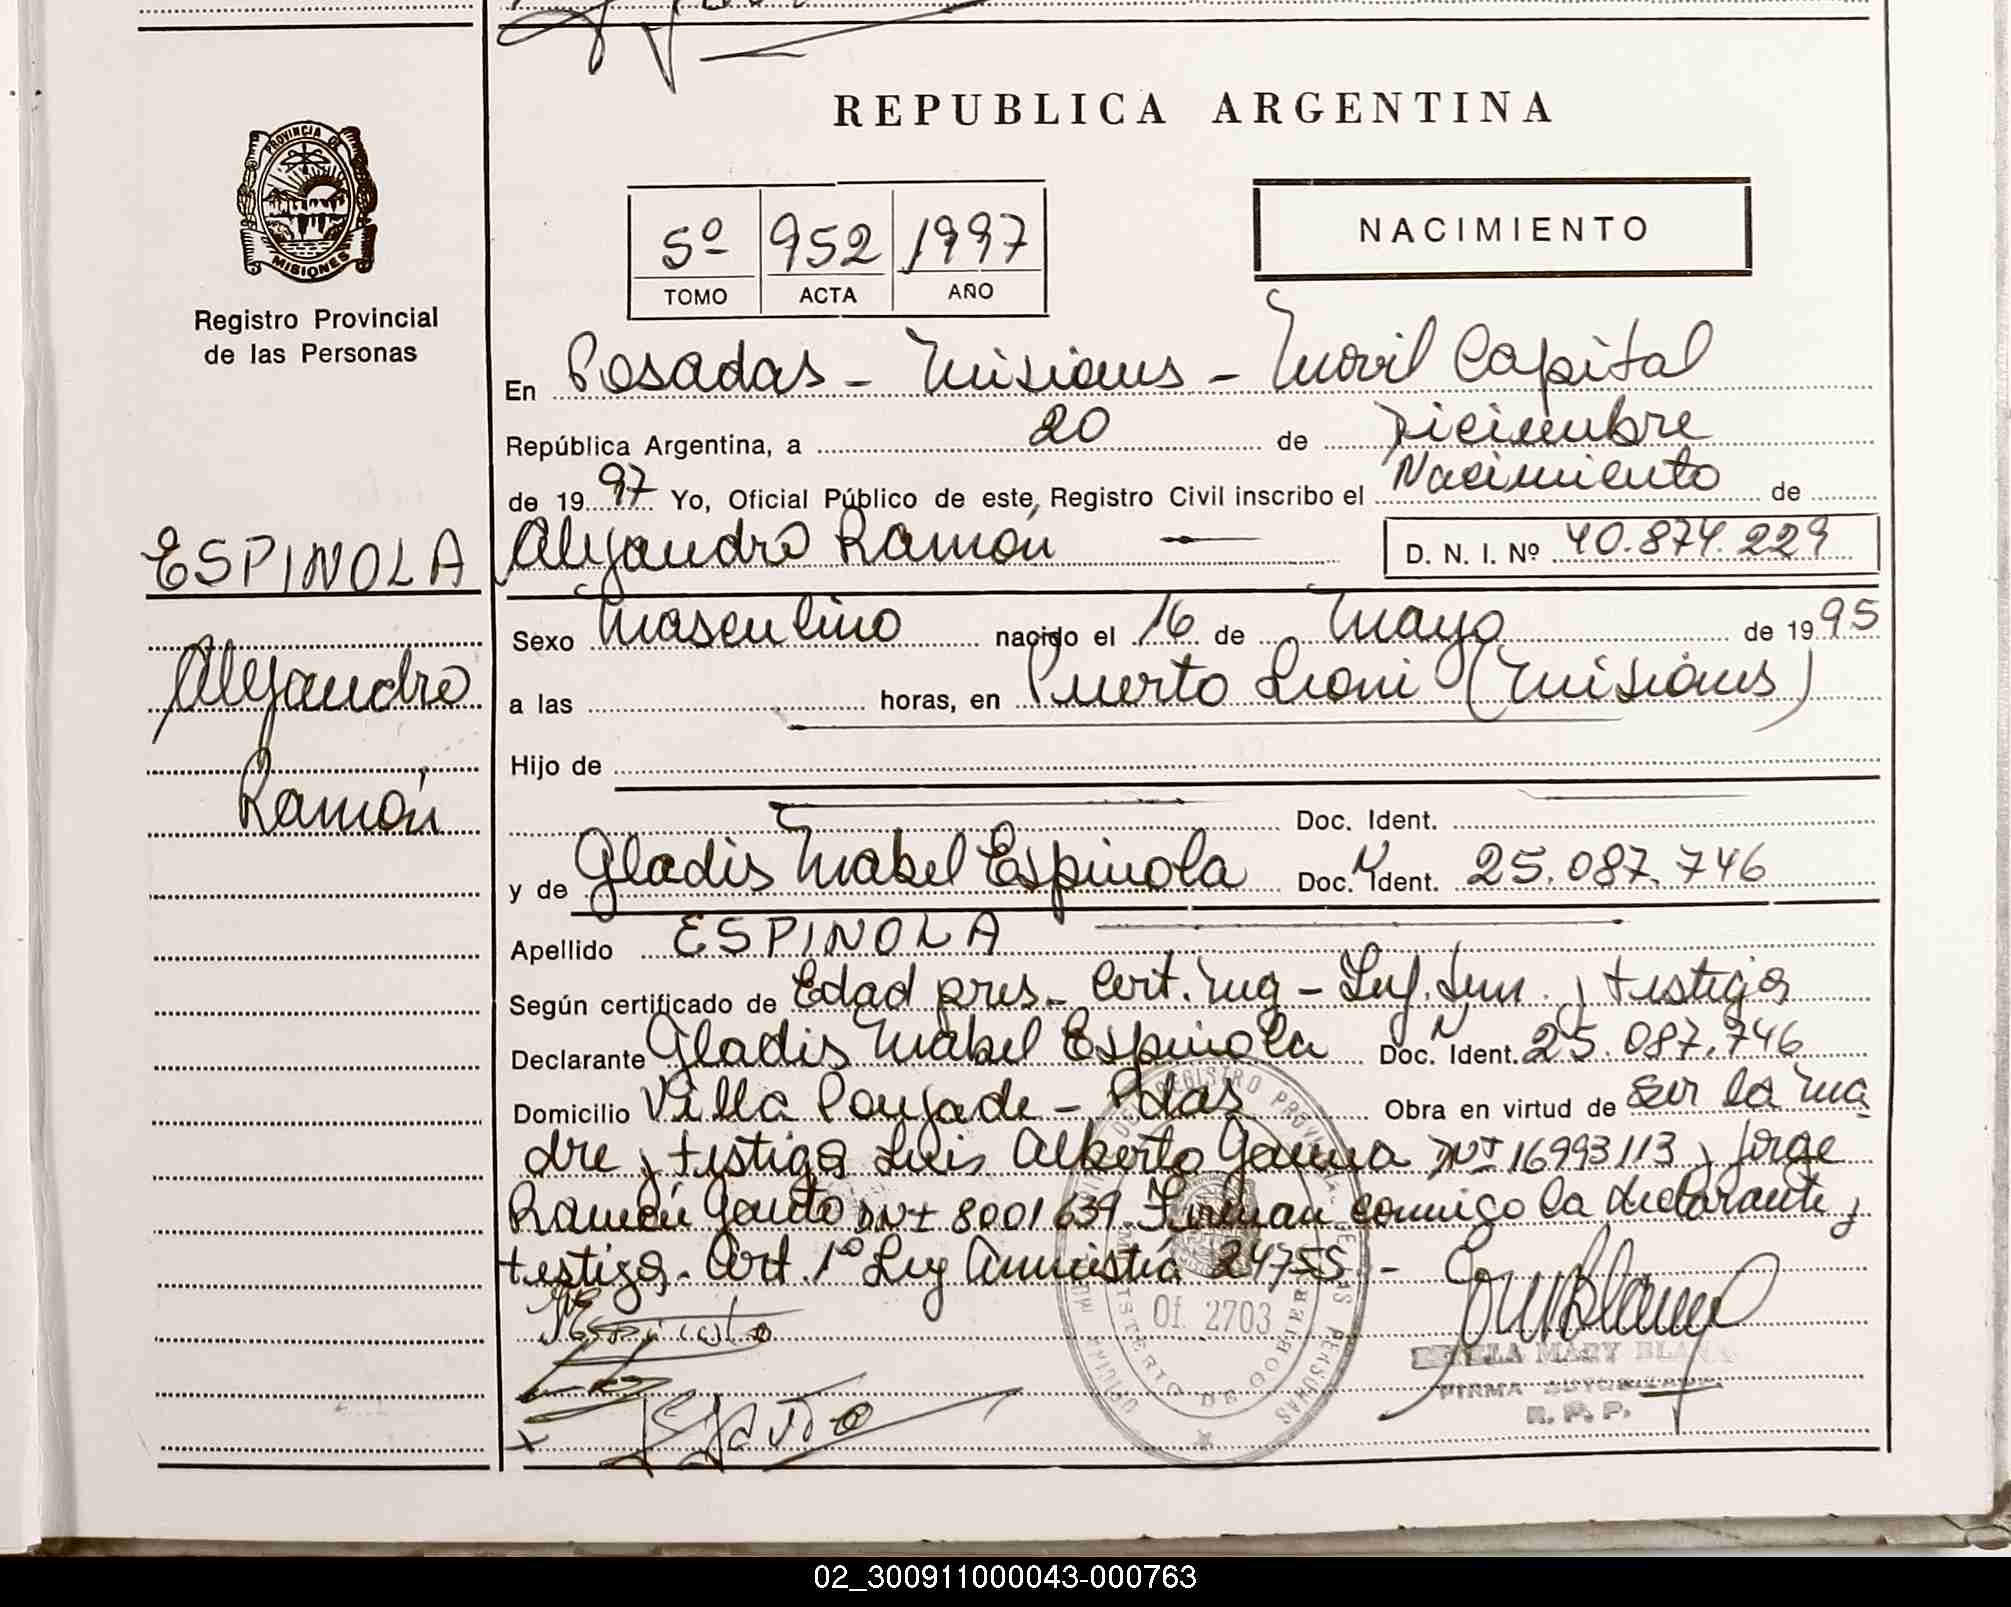 REPUBLICA ARGENTINA
PROVINCIA DE
MISIONES
Registro Provincial
de las Personas
5º 952 1997
TOMO ACTA AÑO
NACIMIENTO
En Posadas - Misiones - Movil Capital
República Argentina, a 20 de Diciembre
de 1997 Yo, Oficial Público de este, Registro Civil inscribo el Nacimiento de
ESPINOLA
Alejandro Ramón
D. N. I. Nº 40.874.229
Sexo Masculino nacido el 16 de Mayo de 1995
Alejandro
a las horas, en Puerto Leoni (Misiones)
Hijo de
Ramón
Doc. Ident.
y de Gladis Mabel Espinola Doc. Ident. 25.087.746
Apellido ESPINOLA
Según certificado de Edad pres. Cert. Neg - Inf. Sum. y testigos
Declarante Gladis Mabel Espinola Doc. Ident. 25.087.746
Domicilio Villa Poujade - Pdas Obra en virtud de ser la ma
dre y testigos Luis Alberto Gauna DNI 16993113 y Jorge
Ramón Gauto DNI 8001639. Firman conmigo la declarante y
testigos. Art. 1º Ley Amnistía 24755 -
REGISTRO PROVINCIAL DE LAS PERSONAS
MINISTERIO DE GOBIERNO
Of. 2703
MARY
FIRMA AUTORIZADA
R. P. P.
02_300911000043-000763